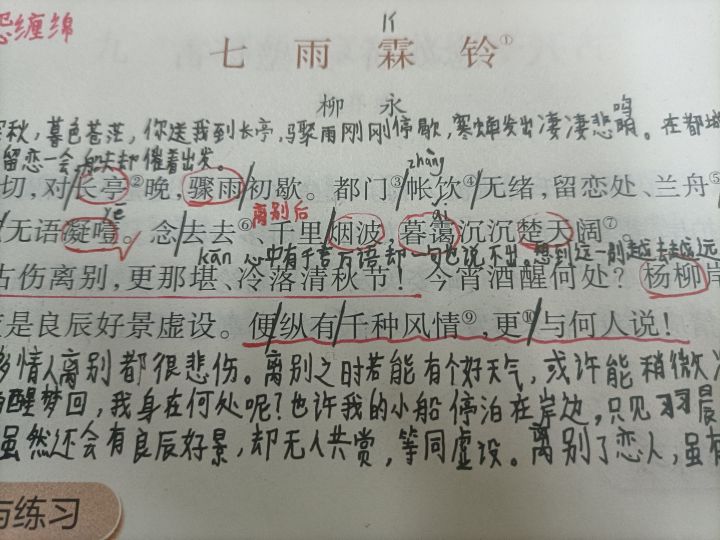 缠绵
lín
七 雨霖铃①
柳永
秋，暮色苍茫，你送我到长亭，骤雨刚刚停歇，寒蝉发出凄凄悲鸣。在都城
留恋一会，船夫却催着出发。
zhàng
切，对长亭②晚，骤雨初歇。都门③帐饮④无绪，留恋处、兰舟⑤
yē 离别后 ǎi
无语凝噎。念去去⑥、千里烟波，暮霭沉沉楚天阔⑦。
kān 心中有千言万语却一句也说不出。想到这一别越去越远
古伤离别，更那堪、冷落清秋节！今宵酒醒何处？杨柳岸
是良辰好景虚设。便纵有千种风情⑨，更⑩与何人说！
多情人离别都很悲伤。离别之时若能有个好天气，或许能稍微
醒梦回，我身在何处呢？也许我的小船停泊在岸边，只见
虽然还会有良辰好景，却无人共赏，等同虚设。离别了恋人，虽有
与练习